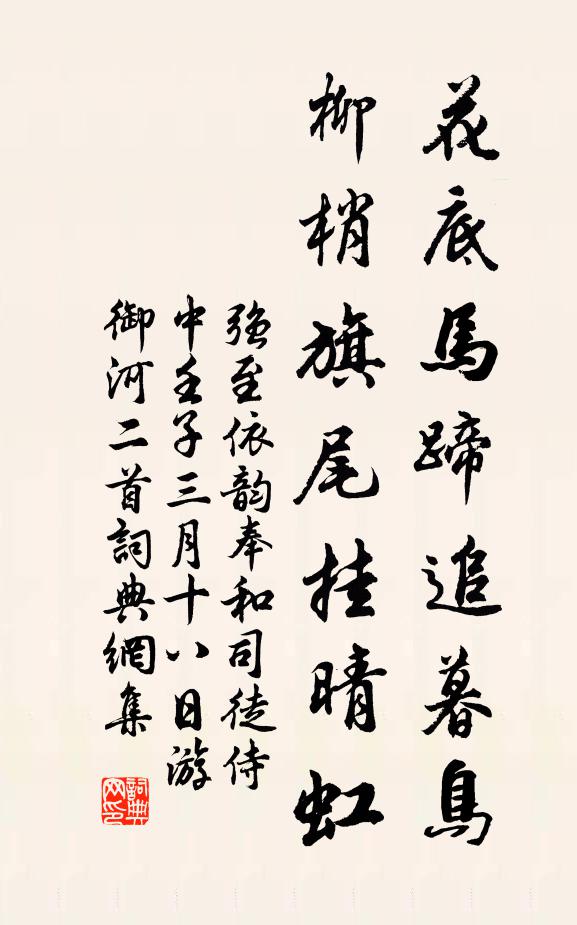 花底馬蹄追暮鳥
柳梢旗尾挂晴虹
强至依韵奉和司徒侍
中壬子三月十八日游
御河二首詞典網集
詞典网印